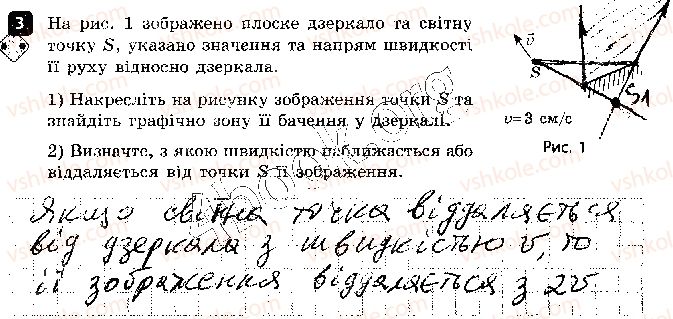 3 На рис. 1 зображено плоске дзеркало та світну
точку S, указано значення та напрям швидкості
її руху відносно дзеркала.
1) Накресліть на рисунку зображення точки S та
знайдіть графічно зону її бачення у дзеркалі.
2) Визначте, з якою швидкістю наближається або
віддаляється від точки S її зображення.
v
S
S1
v=3 см/с
Рис. 1
Якщо світна точка віддаляється
від дзеркала з швидкістю v, то
її зображення віддаляється з 2v
4book.org
vshkole.com